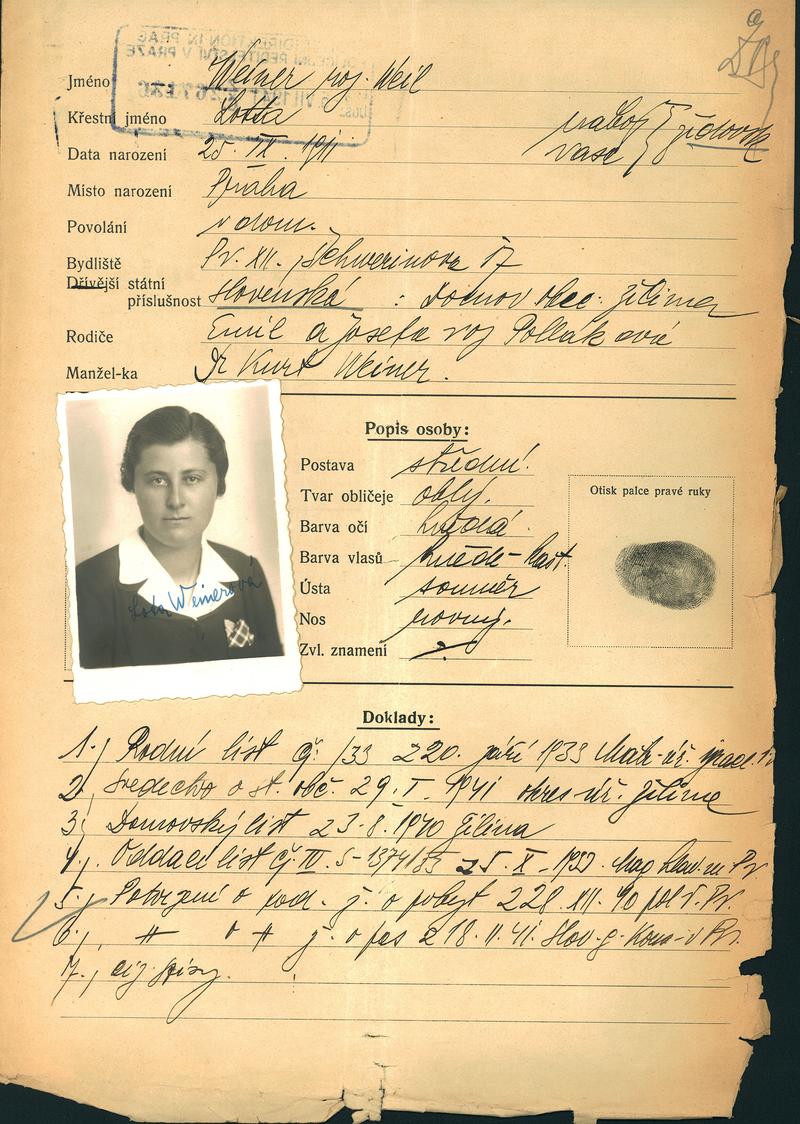 Jméno Weiner roz. Weil
Křestní jméno Lotta
nábož. } židovské
vase
Data narození 25. IX. 1911
Místo narození Praha
Povolání v dom.
Bydliště Pr. XII. Schwerinova 17
Dřívější státní
příslušnost Slovenská : Domov obec: Žilina
Rodiče Emil a Josefa roz Pollákové
Manžel-ka Dr Kurt Weiner.
Popis osoby:
Postava střední.
Tvar obličeje oblý.
Barva očí hnědá.
Barva vlasů hnědé-kašt.
Ústa souměr
Nos rovný.
Zvl. znamení
Otisk palce pravé ruky
Lota Weinerová
Doklady:
1., Rodní list čj. /33 z 20. září 1933 Matr. úř. israel.
2, Svědectvo o st. obč. 29. I. 1941 okres. úř. Žilina
3, Domovský list 23.8.1940 Žilina
4,. Oddací list čj. IV. 5- z 5. X - Mag hlav. m Pr.
5., Potvrzení o pod. ž. o pobyt z 28. XII. 40 pol. ř. Pr.
6., -"- o -"- ž. o pas z 18. II. 41. Slov. g. Konz. v Pr.
7., ciz. spisy.